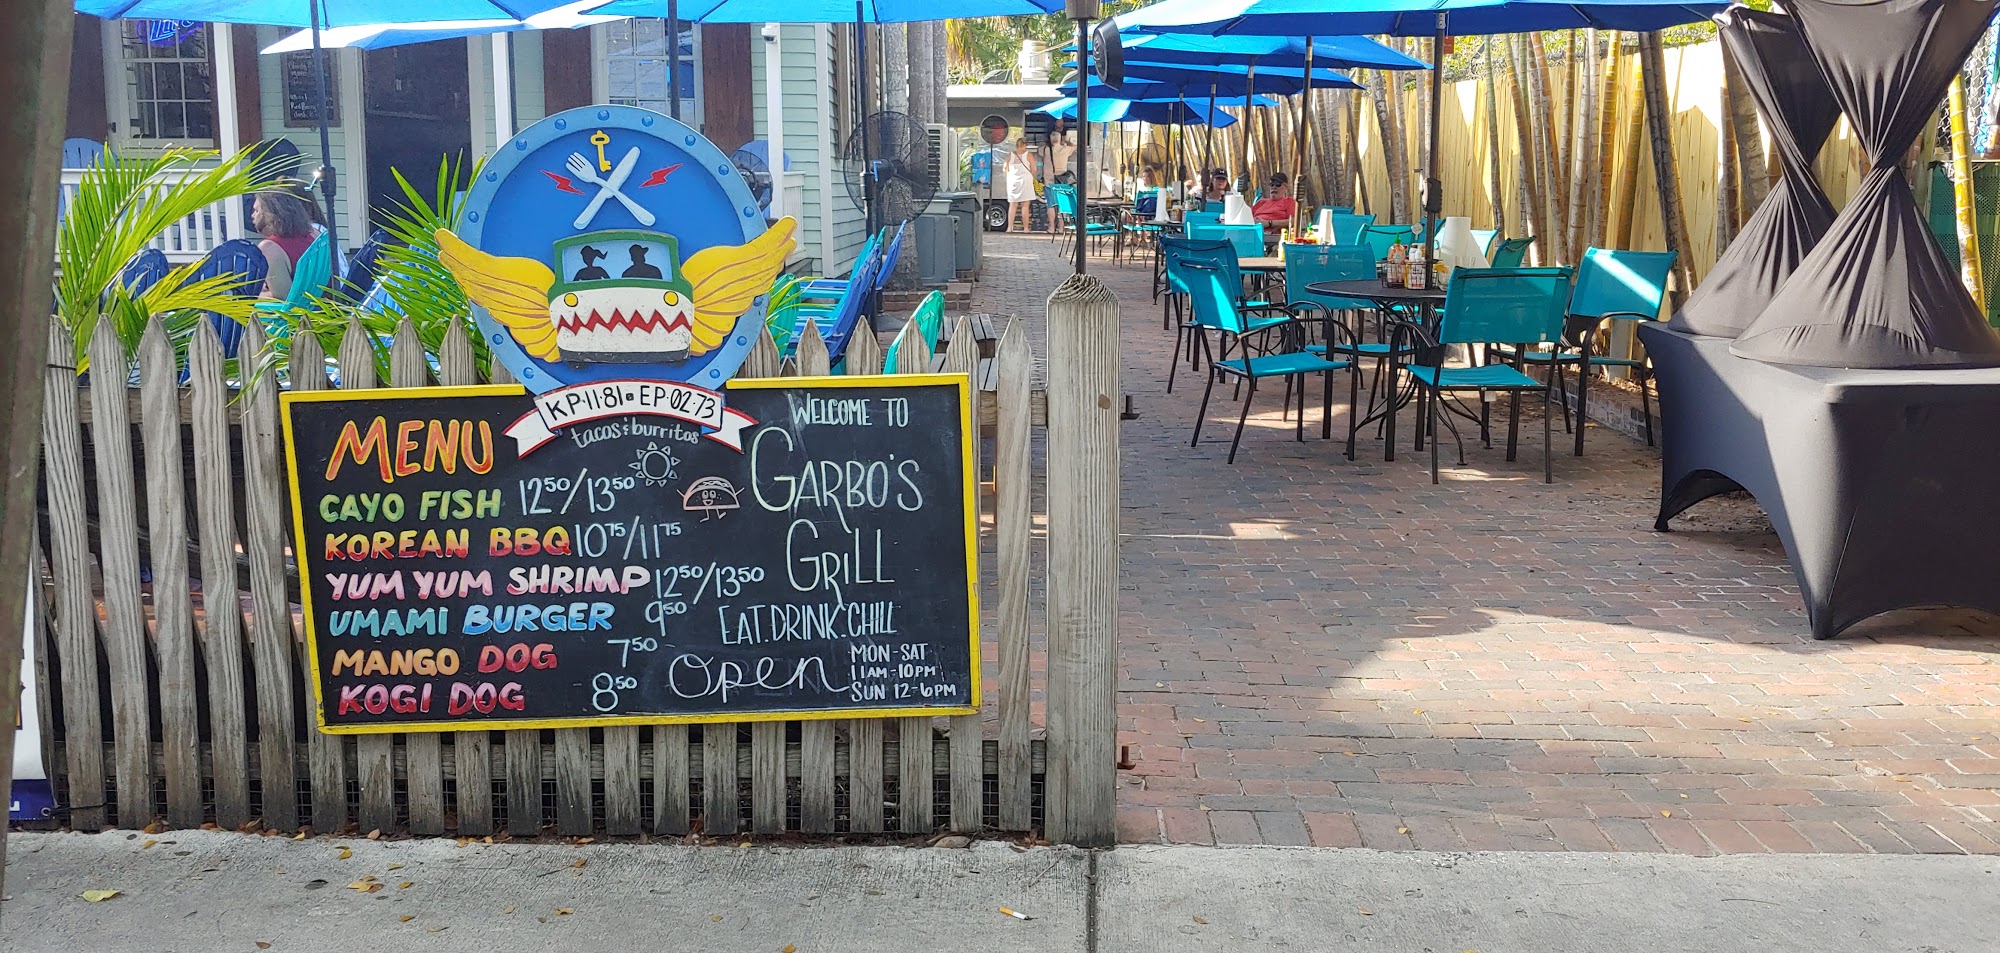 KP·11·81 • EP·02·73
MENU
tacos & burritos
CAYO FISH 12⁵⁰/13⁵⁰
KOREAN BBQ 10⁷⁵/11⁷⁵
YUM YUM SHRIMP 12⁵⁰/13⁵⁰
UMAMI BURGER 9⁵⁰
MANGO DOG 7⁵⁰
KOGI DOG 8⁵⁰
WELCOME TO
GARBO'S
GRILL
EAT.DRINK.CHILL
Open
MON-SAT
11AM-10PM
SUN 12-6PM